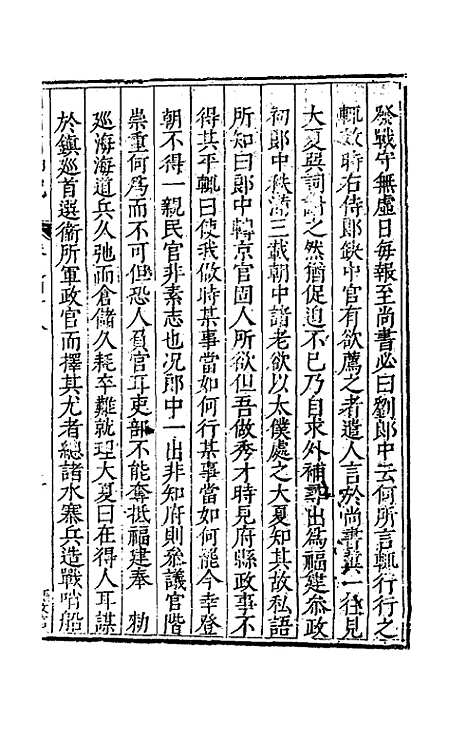 發戰守無虛日每報至尚書必曰劉郎中云何所言輒行行之
輒效時右侍郎缺中官有欲薦之者遣人言於尚書冀一往見
大夏與詞謝之然猶促迫不已乃自求外補尋出為福建叅政
初郎中秩滿三載朝中諸老欲以太僕處之大夏知其故私語
所知曰郎中轉京官固人所欲但吾做秀才時見府縣政事不
得其平輒曰使我做時某事當如何行某事當如何罷今幸登
朝不得一親民官非素志也况郎中一出非知府則叅議官階
崇重何為而不可但恐人負官耳吏部不能奪抵福建奉 勑
廵海海道兵久弛而倉儲久耗卒難就理大夏曰在得人耳謀
於鎮廵首選衞所軍政官而擇其尤者總諸水寨兵造戰哨船